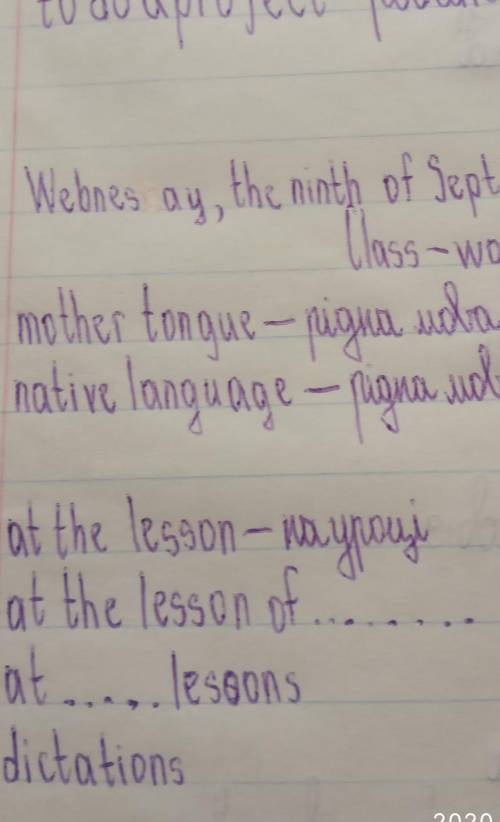 to do a project
Webnes ay, the ninth of Sept
Class-wo
mother tongue – рідна мова
native language – рідна мов
at the lesson – на уроці
at the lesson of .........
at ...... lessons
dictations
2020